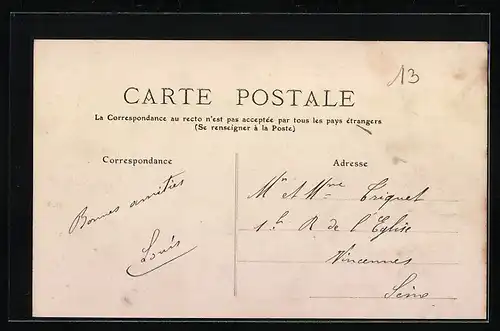 13
CARTE POSTALE
La Correspondance au recto n'est pas acceptée par tous les pays étrangers
(Se renseigner à la Poste)
Correspondance
Adresse
Bonnes amitiés
Louis
Mr et Mme Triquet
R de l'Eglise
Vincennes
Seine